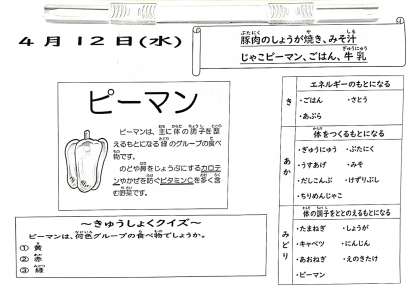 4月12日(水)
豚肉のしょうが焼き、みそ汁
じゃこピーマン、ごはん、牛乳
ピーマン
ピーマンは、主に体の調子を整
えるもとになる緑のグループの食べ
物です。
のどや鼻をじょうぶにするカロテ
ンやかぜを防ぐビタミンCを多く含
む野菜です。
～きゅうしょくクイズ～
ピーマンは、何色グループの食べ物でしょうか。
① 黄
② 赤
③ 緑
き
エネルギーのもとになる
・ごはん ・さとう
・あぶら
あか
体をつくるもとになる
・ぎゅうにゅう ・ぶたにく
・うすあげ ・みそ
・だしこんぶ ・けずりぶし
・ちりめんじゃこ
みどり
体の調子をととのえるもとになる
・たまねぎ ・しょうが
・キャベツ ・にんじん
・あおねぎ ・えのきたけ
・ピーマン